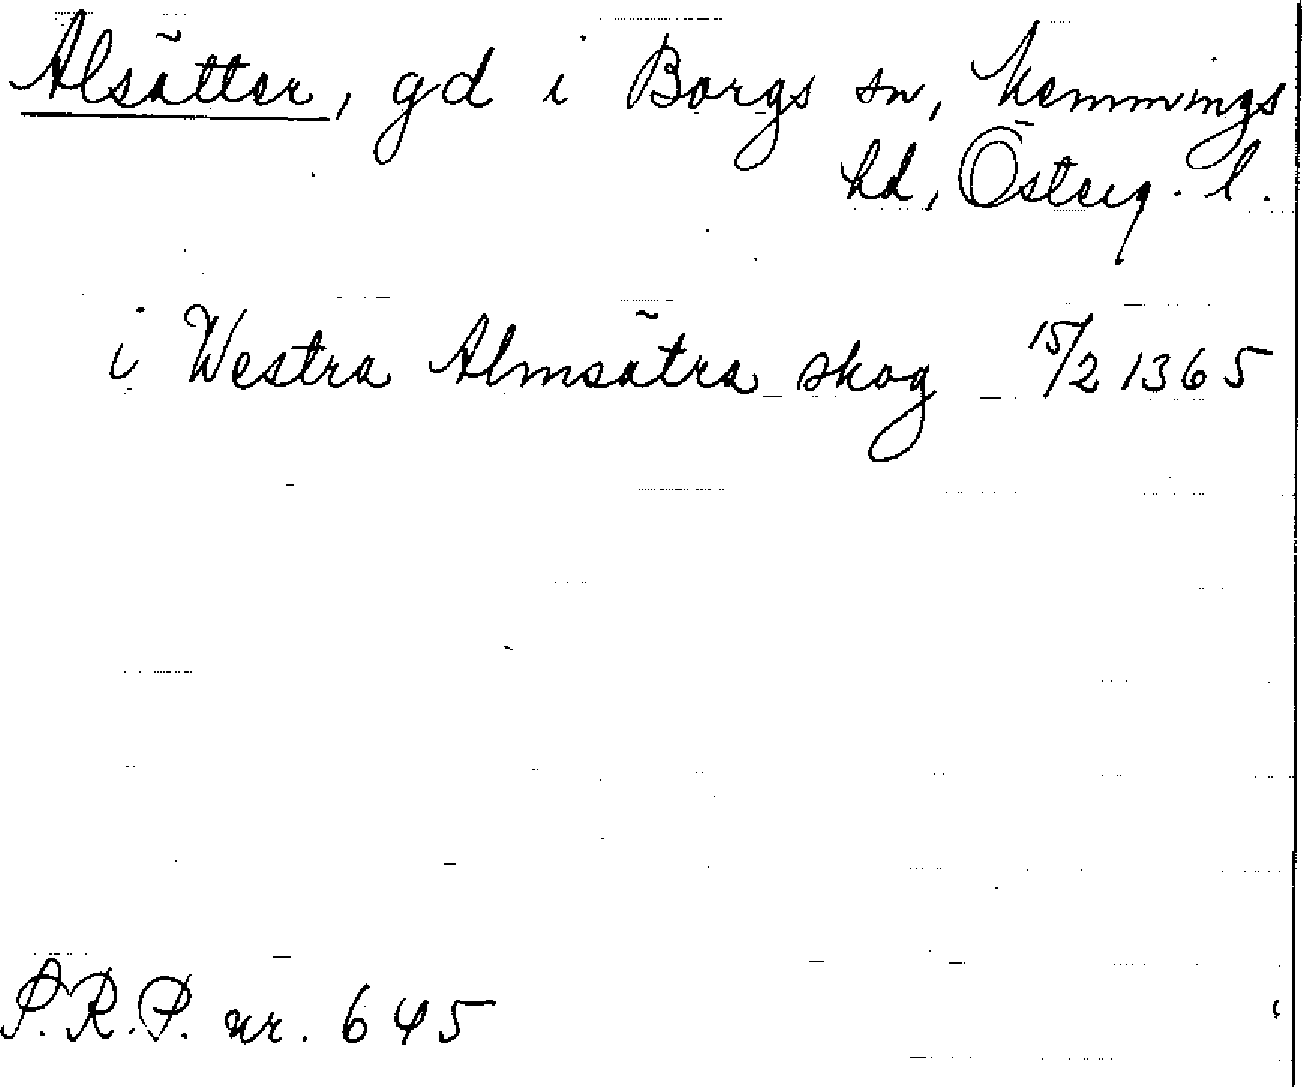 Alsätter, gd i Borgs sn, Memmings
hd, Österg. l.
i Westra Almsätra skog 15/2 1365
P.R.P. nr. 645